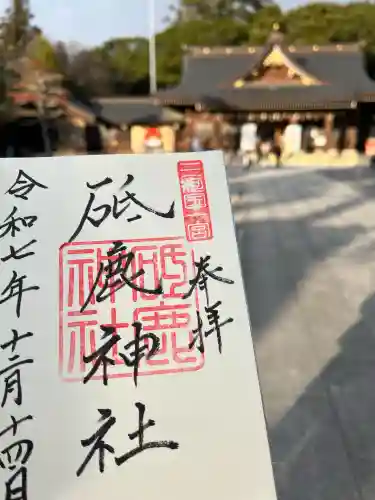 三河國三宮
奉拝
砥鹿神社
砥鹿
神社
令和七年十二月十四日